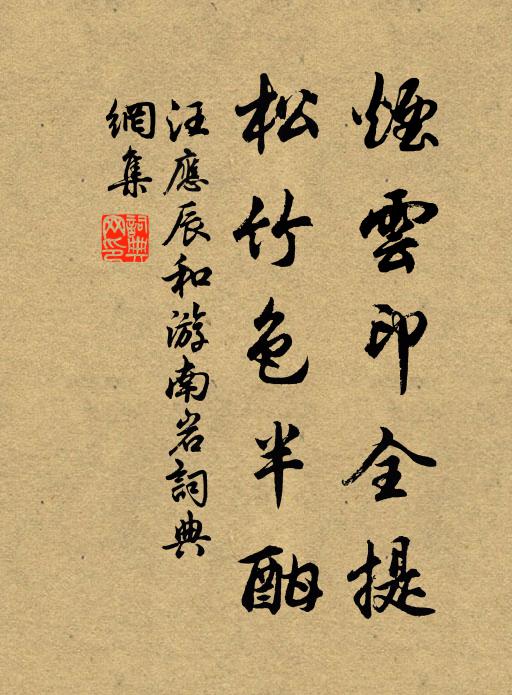 煙雲印全提
松竹色半酣
汪應辰和游南岩詞典
網集
詞典網印